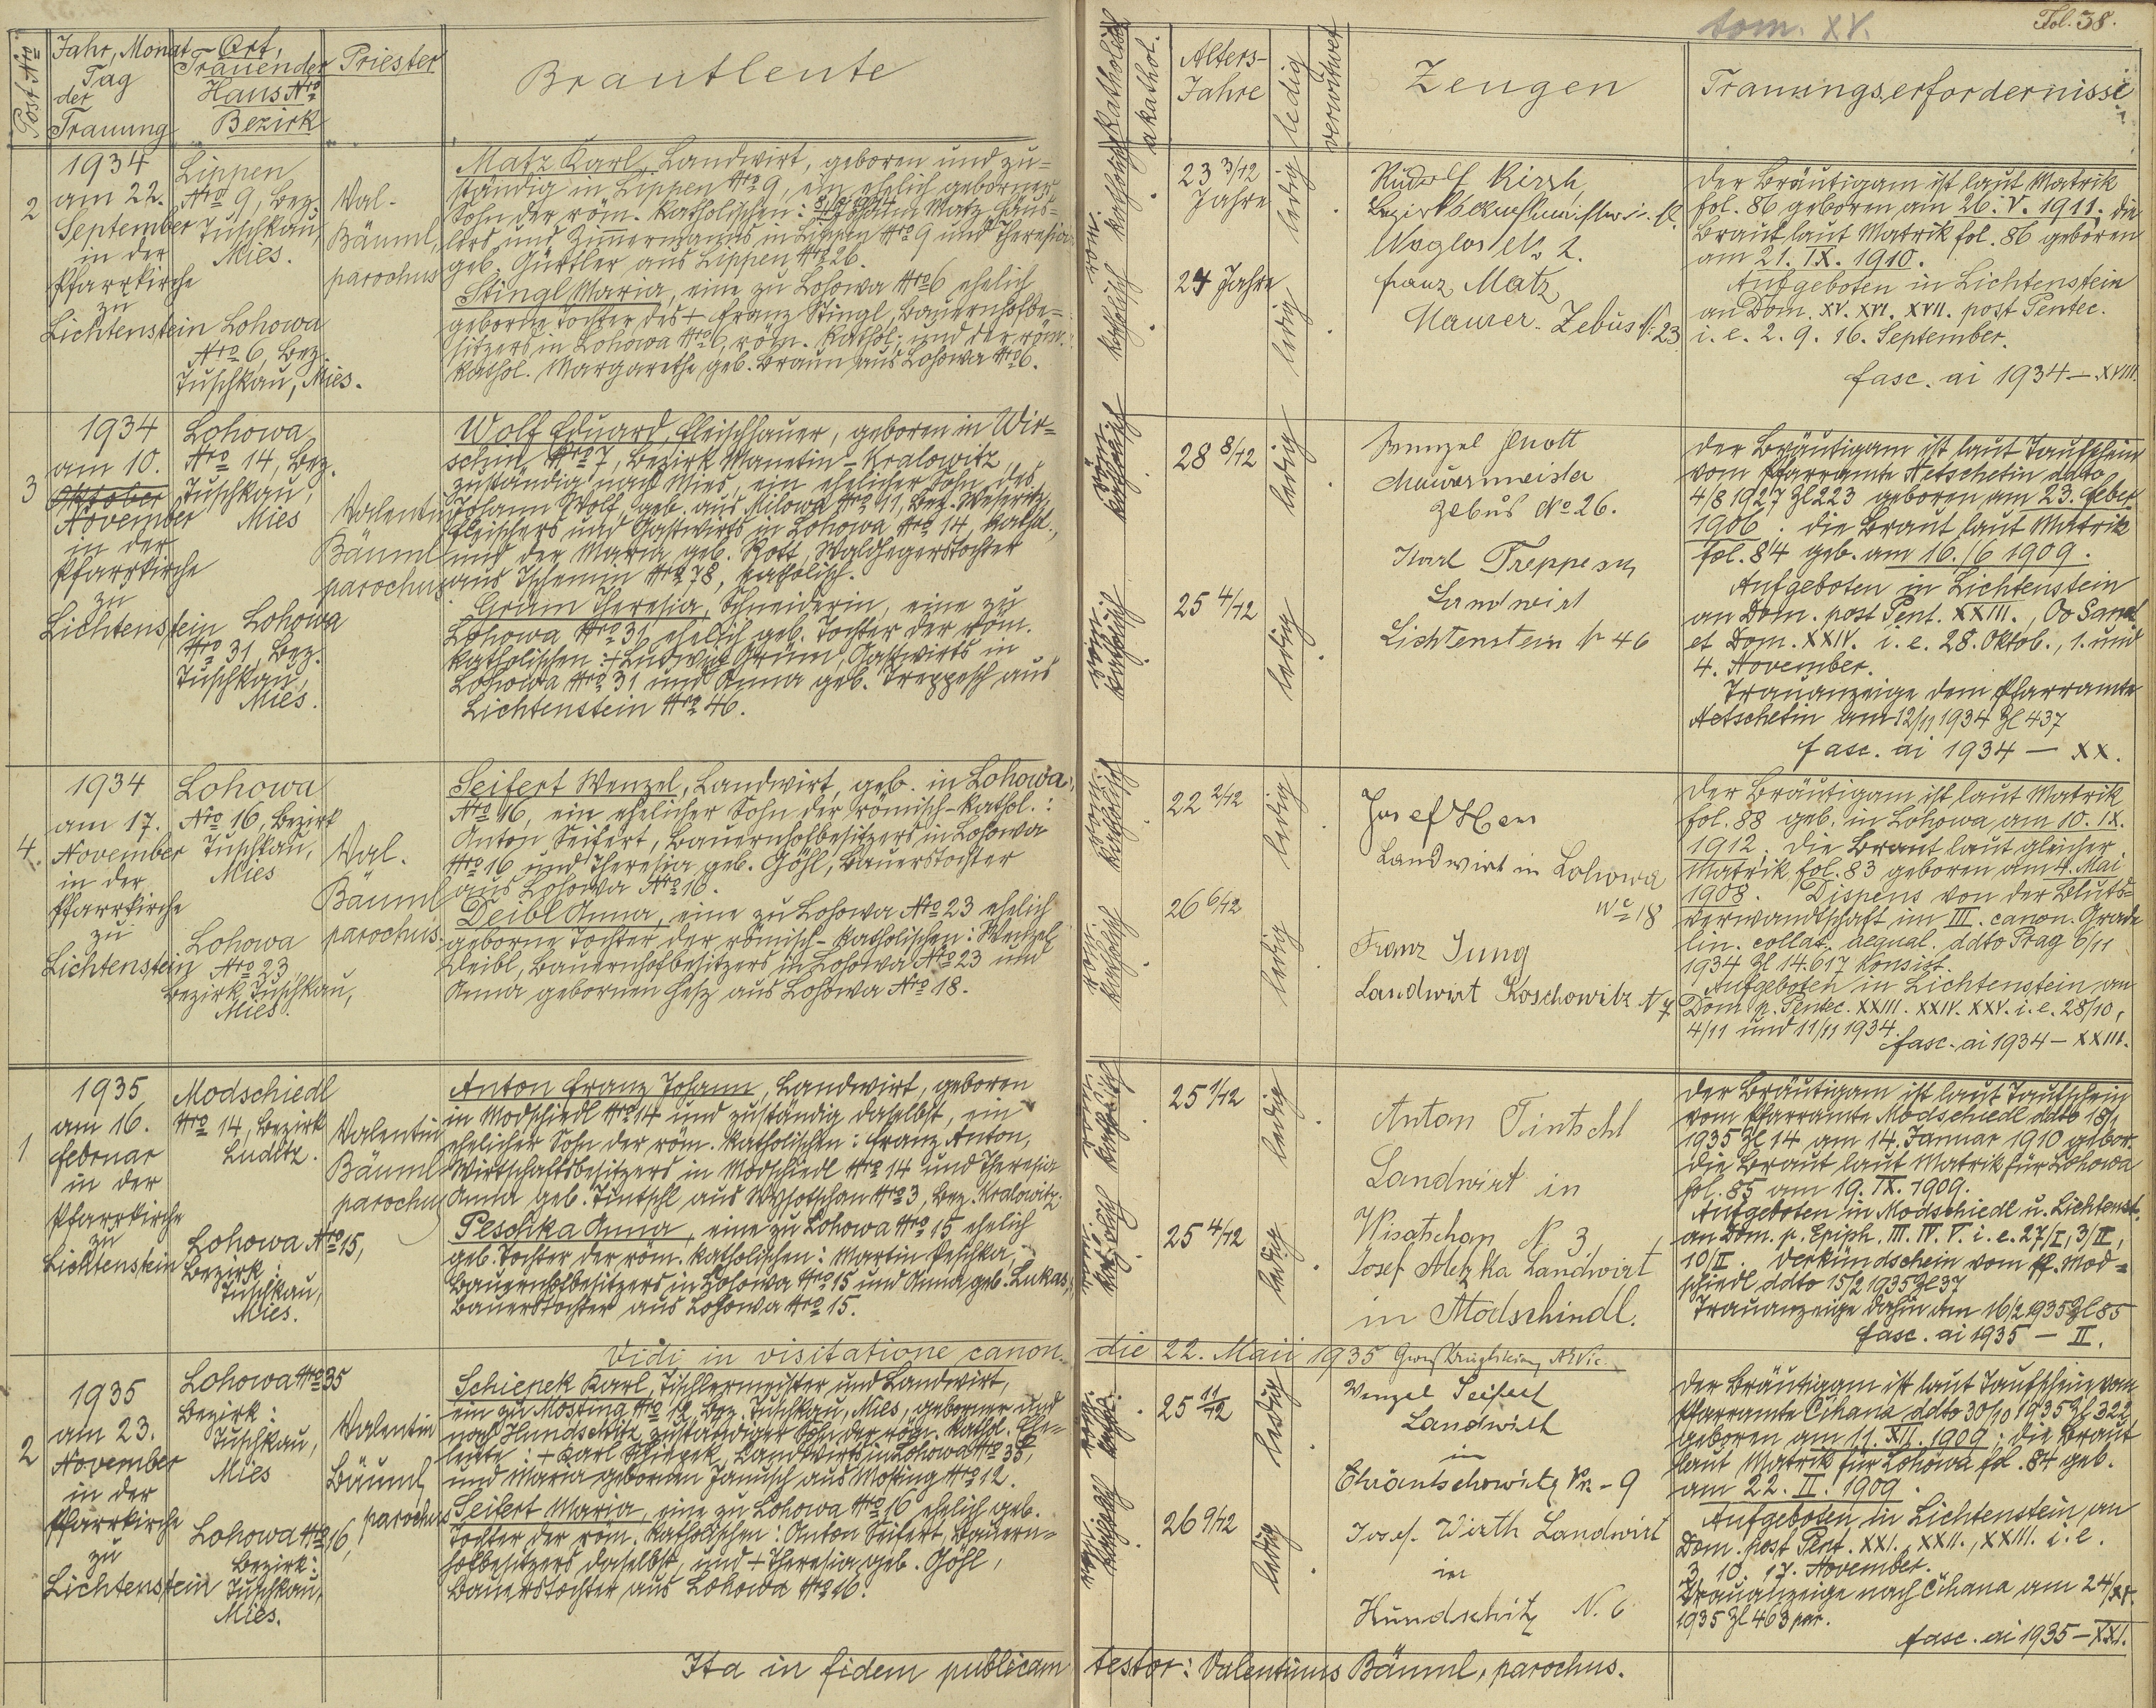 tom. XV.
Fol. 38.
Post Nro
Jahr, Monat
Tag
der
Trauung
Ort,
Trauender
Haus Nro
Bezirk
Priester
Brautleute
katholisch
akathol.
Alters-
Jahre
ledig
verwitwet
Zeugen
Trauungserfordernisse
2
1934
am 22.
September
in der
Pfarrkirche
zu
Lichtenstein
Lippen
Nro 9, Bez.
Tuschkau,
Mies.
Lohowa
Nro 6, Bez.
Tuschkau, Mies.
Val.
Bäuml,
parochus
Matz Karl, Landwirt, geboren und zu=
ständig in Lippen Nro 9, ein ehelich geborner
Sohn der röm. katholischen: Johann Matz, Häus-
lers und Zimmermanns in Lippen Nro 9 und Theresia
geb. Gürtler aus Lippen Nro 26.
Stingl Maria, eine zu Lohowa Nro 6 ehelich
geborne Tochter des + Franz Stingl, Bauernhofbe=
sitzers in Lohowa Nro 6, röm. kathol. und der röm.
kathol. Margarethe geb. Braun aus Lohowa Nro 6.
röm. katholisch
katholisch
23 3/12
Jahre
24 Jahre
ledig
ledig
Rudolf Kirsh
Bezirks
No 2.
Franz Matz
Maurer. Zebus N. 23
Der Bräutigam ist laut Matrik
fol. 86 geboren am 26. V. 1911. die
Braut laut Matrik fol. 86 geboren
am 21. IX. 1910.
Aufgeboten in Lichtenstein
an Dom. XV. XVI. XVII. post Pentec.
i. e. 2. 9. 16. September.
fasc. ai 1934 — XVIII.
3
1934
am 10.
Oktober
November
in der
Pfarrkirche
zu
Lichtenstein
Lohowa
Nro 14, Bez.
Tuschkau,
Mies
Lohowa
Nro 31, Bez.
Tuschkau,
Mies.
Valentin
Bäuml
parochus
Wolf Eduard, Fleischhauer, geboren in Wir=
schin Nro 7, Bezirk Manetin-Kralowitz,
zuständig nach Mies, ein ehelicher Sohn des
Johann Wolf, geb. aus Milowa Nro 11, Bez. Weseritz,
Fleischers und Gastwirts in Lohowa Nro 14, kathol.,
und der Maria geb. Kott, Waldhegerstochter
aus Tschemin Nro 78, katholisch.
Grüm Theresia, Schneiderin, eine zu
Lohowa Nro 31 ehelich geb. Tochter der röm.
katholischen: + Ludwig Grüm, Gastwirts in
Lohowa Nro 31 und Anna geb. Treppesch aus
Lichtenstein Nro 46.
röm. katholisch
röm. katholisch
28 8/12
25 4/12
ledig
ledig
Wenzel Knott
Mauermeister
Zebus No 26.
Karl Treppesch
Landwirt
Lichtenstein N 46
Der Bräutigam ist laut Taufschein
vom Pfarramte Netschetin ddto
4/8 1927 Zl 223 geboren am 23. Feber
1906. die Braut laut Matrik
fol. 84 geb. am 16./6 1909.
Aufgeboten in Lichtenstein
an Dom. post Pent. XXIII., Oo Sanct.
et Dom. XXIV. i. e. 28. Oktob., 1. und
4. November.
Trauanzeige dem Pfarramte
Netschetin am 12/11 1934 Zl 437
fasc. ai 1934 — XX.
4.
1934
am 17.
November
in der
Pfarrkirche
zu
Lichtenstein
Lohowa
Nro 16, Bezirk
Tuschkau,
Mies
Lohowa
Nro 23
Bezirk Tuschkau,
Mies.
Val.
Bäuml
parochus.
Seifert Wenzel, Landwirt, geb. in Lohowa,
Nro 16, ein ehelicher Sohn der römisch-kathol.:
Anton Seifert, Bauernhofbesitzers in Lohowa
Nro 16 und Theresia geb. Göhl, Bauerstochter
aus Lohowa Nro 16.
Deibl Anna, eine zu Lohowa Nro 23 ehelich
geborne Tochter der römisch-katholischen: Wenzel
Deibl, Bauernhofbesitzers in Lohowa Nro 23 und
Anna gebornen Hesz aus Lohowa Nro 18.
röm. katholisch
röm. katholisch
22 2/12
26 6/12
ledig
ledig
Josef Hess
Landwirt in Lohowa
No 18
Franz Jung
Landwirt Koschowitz N 7
Der Bräutigam ist laut Matrik
fol. 88 geb. in Lohowa am 10. IX.
1912. Die Braut laut gleicher
Matrik fol. 83 geboren am 4. Mai
1908. Dispens von der Bluts=
verwandtschaft im III. canon. Grade
lin. collat. aequal. ddto Prag 6/11
1934 Zl 14.617 Konsist.
Aufgeboten in Lichtenstein an
Dom. p. Pentec. XXIII. XXIV. XXV. i. e. 28/10,
4/11 und 11/11 1934.
fasc. ai 1934 — XXIII.
1
1935
am 16.
Februar
in der
Pfarrkirche
zu
Lichtenstein
Modschiedl
Nro 14, Bezirk
Luditz.
Lohowa Nro 15,
Bezirk:
Tuschkau,
Mies.
Valentin
Bäuml
parochus
Anton Franz Johann, Landwirt, geboren
in Modschiedl Nro 14 und zuständig daselbst, ein
ehelicher Sohn der röm. katholischen: Franz Anton,
Wirtschaftsbesitzers in Modschiedl Nro 14 und Theresia
Anna geb. Tintschl aus Wysotschan Nro 3, Bez. Kralowitz.
Peschka Anna, eine zu Lohowa Nro 15 ehelich
geb. Tochter der röm. katholischen: Martin Peschka,
Bauernhofbesitzers in Lohowa Nro 15 und Anna geb. Lukas,
Bauerstochter aus Lohowa Nro 15.
röm. katholisch
röm. katholisch
25 1/12
25 4/12
ledig
ledig
Anton Tintschl
Landwirt in
Wisotschan N. 3
Josef Metzka Landwirt
in Modschindl.
Der Bräutigam ist laut Taufschein
vom Pfarramte Modschiedl ddto 18/1
1935 Zl 14 am 14. Januar 1910 gebor.
die Braut laut Matrik für Lohowa
fol. 85 am 19. IX. 1909.
Aufgeboten in Modschiedl u. Lichtenst.
an Dom. p. Epiph. III. IV. V. i. e. 27/I, 3/II,
10/II. Verkündschein vom Pf. Mod=
schiedl ddto 15/2 1935 Zl 37
Trauanzeige dahin am 16/2 1935 Zl 85
fasc. ai 1935 — II.
Vidi in visitatione canon. die 22. Maii 1935
2
1935
am 23.
November
in der
Pfarrkirche
zu
Lichtenstein
Lohowa Nro 35
Bezirk:
Tuschkau,
Mies
Lohowa Nro 16,
Bezirk:
Tuschkau,
Mies.
Valentin
Bäuml
parochus
Schiepek Karl, Tischlermeister und Landwirt,
ein zu Mosting Nro 12, Bez. Tuschkau, Mies, geborner und
nach Hundschitz zuständiger Sohn der röm. kathol. Ehe-
leute: + Karl Schiepek, Landwirts in Lohowa Nro 35,
und Maria gebornen Janusch aus Mosting Nro 12.
Seifert Maria, eine zu Lohowa Nro 16 ehelich geb.
Tochter der röm. katholischen: Anton Seifert, Bauern=
hofbesitzers daselbst, und + Theresia geb. Göhl,
Bauerstochter aus Lohowa Nro 16.
röm. kathol.
röm. katholisch
25 11/12
26 9/12
ledig
ledig
Wenzel Seifert
Landwirt
in
Chrantschowitz Nr - 9
Josef Wirth Landwirt
in
Hundschitz N. 6
Der Bräutigam ist laut Taufschein vom
Pfarramte Čihana ddto 30/10 1935 Zl 322
geboren am 11. XII. 1909; die Braut
laut Matrik für Lohowa fol. 84 geb.
am 22. II. 1909.
Aufgeboten in Lichtenstein an
Dom. post Pent. XXI., XXII., XXIII. i. e.
3. 10. 17. November.
Trauanzeige nach Čihana am 24/XI.
1935 Zl 463
fasc. ai 1935 — XXI.
Ita in fidem publicam testor: Valentinus Bäuml, parochus.